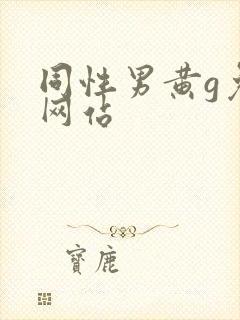 同性男黄g
网估
寶鹿